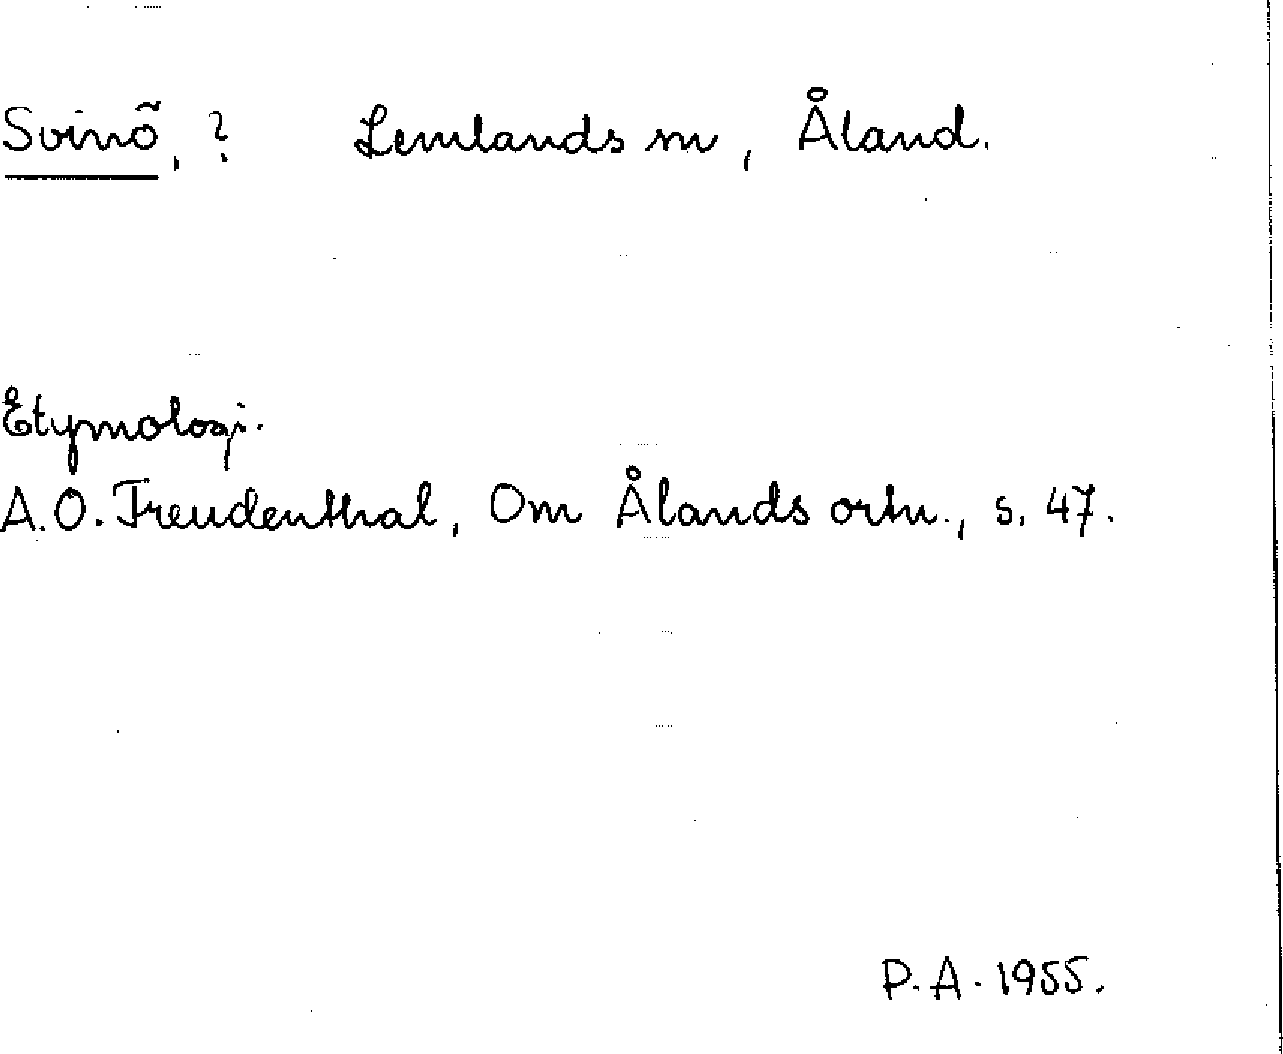 Svinö, ? Lemlands sn, Åland.
Etymologi.
A.O. Freudenthal, Om Ålands ortn., s. 47.
P.A. 1955.